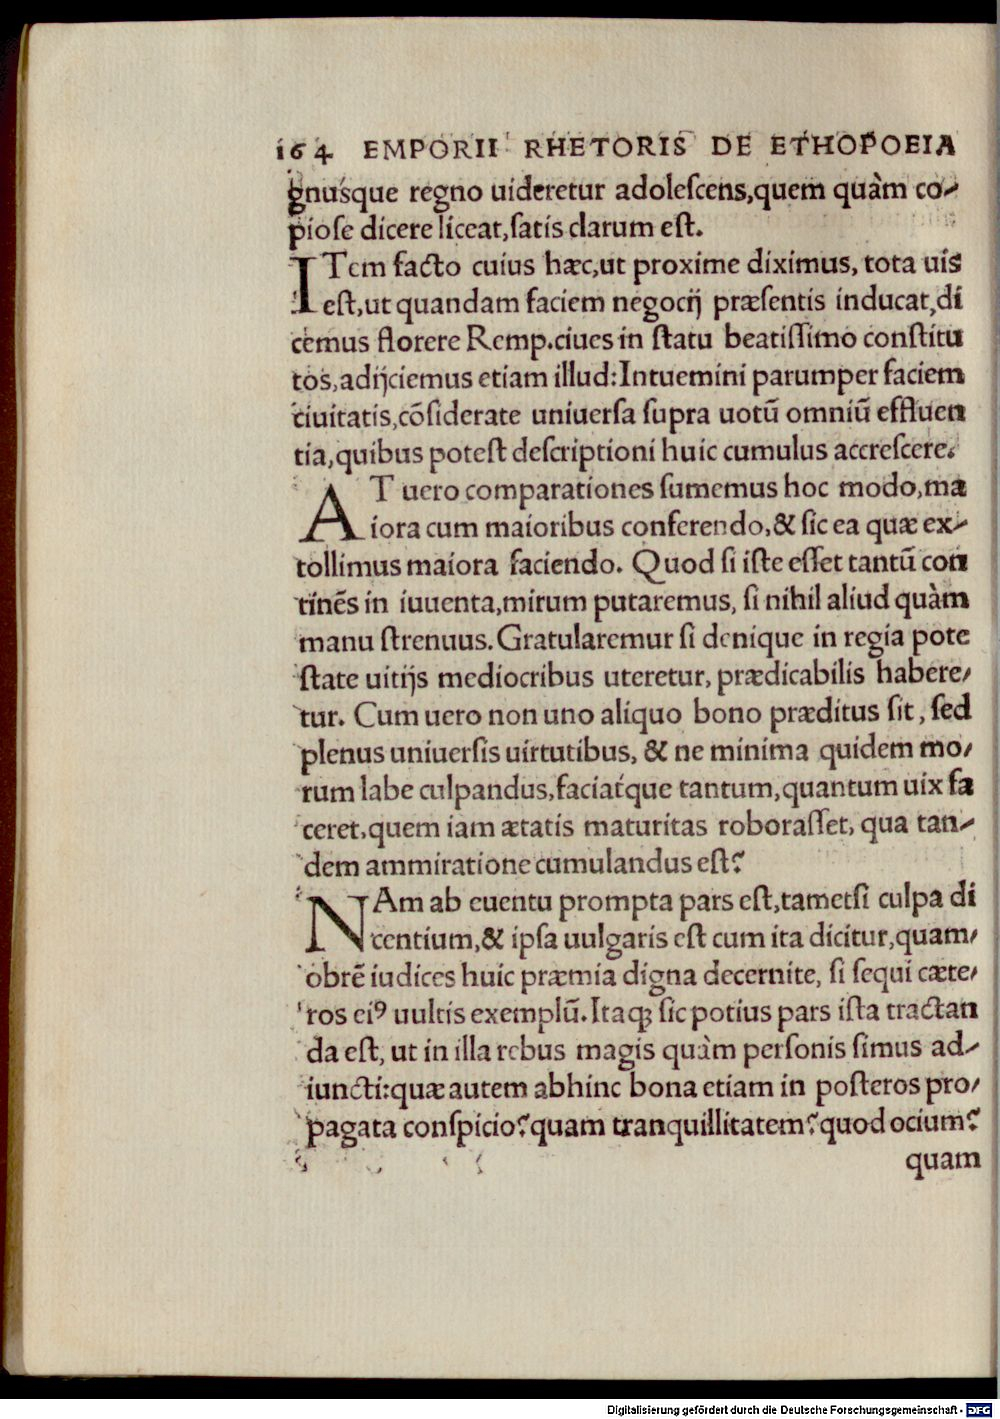 164 EMPORII RHETORIS DE ETHOPOEIA
gnusque regno uideretur adolescens,quem quàm co-
piose dicere liceat,satis clarum est.
ITem facto cuius hæc,ut proxime diximus, tota uis
est,ut quandam faciem negocij præsentis inducat,di
cemus florere Remp.ciues in statu beatissimo constitu
tos,adijciemus etiam illud:Intuemini parumper faciem
ciuitatis,cōsiderate uniuersa supra uotū omniū effluen
tia,quibus potest descriptioni huic cumulus accrescere.
AT uero comparationes sumemus hoc modo,ma
iora cum maioribus conferendo,& sic ea quæ ex-
tollimus maiora faciendo. Quod si iste esset tantū con
tinēs in iuuenta,mirum putaremus, si nihil aliud quàm
manu strenuus.Gratularemur si denique in regia pote
state uitijs mediocribus uteretur, prædicabilis habere-
tur. Cum uero non uno aliquo bono præditus sit, sed
plenus uniuersis uirtutibus, & ne minima quidem mo-
rum labe culpandus,faciatque tantum,quantum uix fa
ceret,quem iam ætatis maturitas roborasset, qua tan-
dem ammiratione cumulandus est?
NAm ab euentu prompta pars est,tametsi culpa di
centium,& ipsa uulgaris est cum ita dicitur,quam-
obrē iudices huic præmia digna decernite, si sequi cæte-
ros eiꝰ uultis exemplū.Itaqꝫ sic potius pars ista tractan
da est, ut in illa rebus magis quàm personis simus ad-
iuncti:quæ autem abhinc bona etiam in posteros pro-
pagata conspicio?quam tranquillitatem?quod ocium?
quam
Digitalisierung gefördert durch die Deutsche Forschungsgemeinschaft - DFG